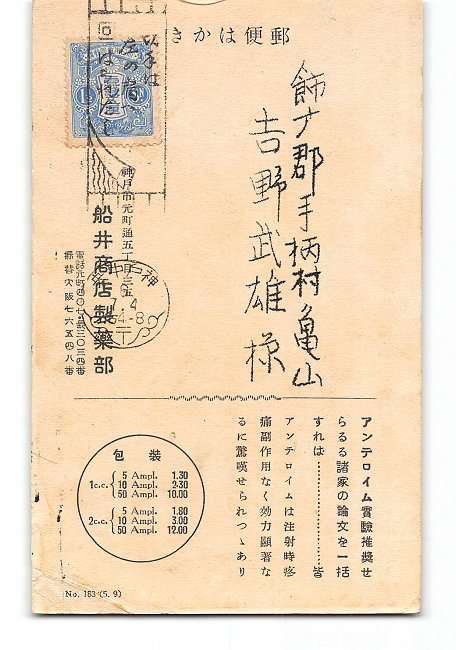 郵便はかき
飾广郡手柄村亀山
吉野武雄様
神戸市元町通五丁目三五
船井商店製藥部
電話元町四〇七・二三〇三四番
振替大阪七六五四八番
神戸中央
7.4
アンテロイム實驗推奬せ
らるる諸家の論文を一括
すれば…………皆
アンテロイムは注射時疼
痛副作用なく効力顯著な
るに驚嘆せられつゝあり
包裝
1c.c. { 5 Ampl. 1.30
10 Ampl. 2.30
50 Ampl. 10.00
2c.c. { 5 Ampl. 1.80
10 Ampl. 3.00
50 Ampl. 12.00
No. 183 (5. 9)